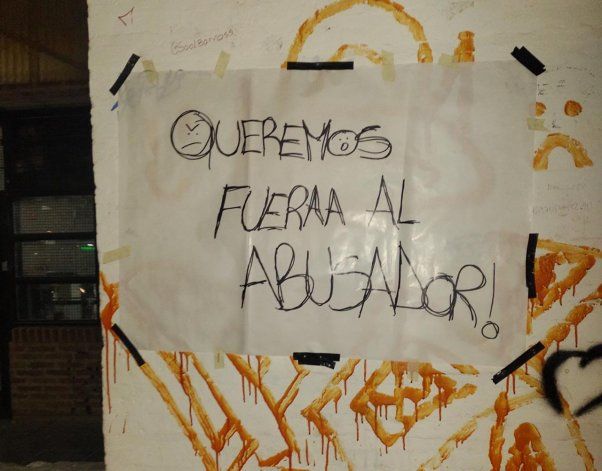 QUEREMOS
FUERAA AL
ABUSADOR!